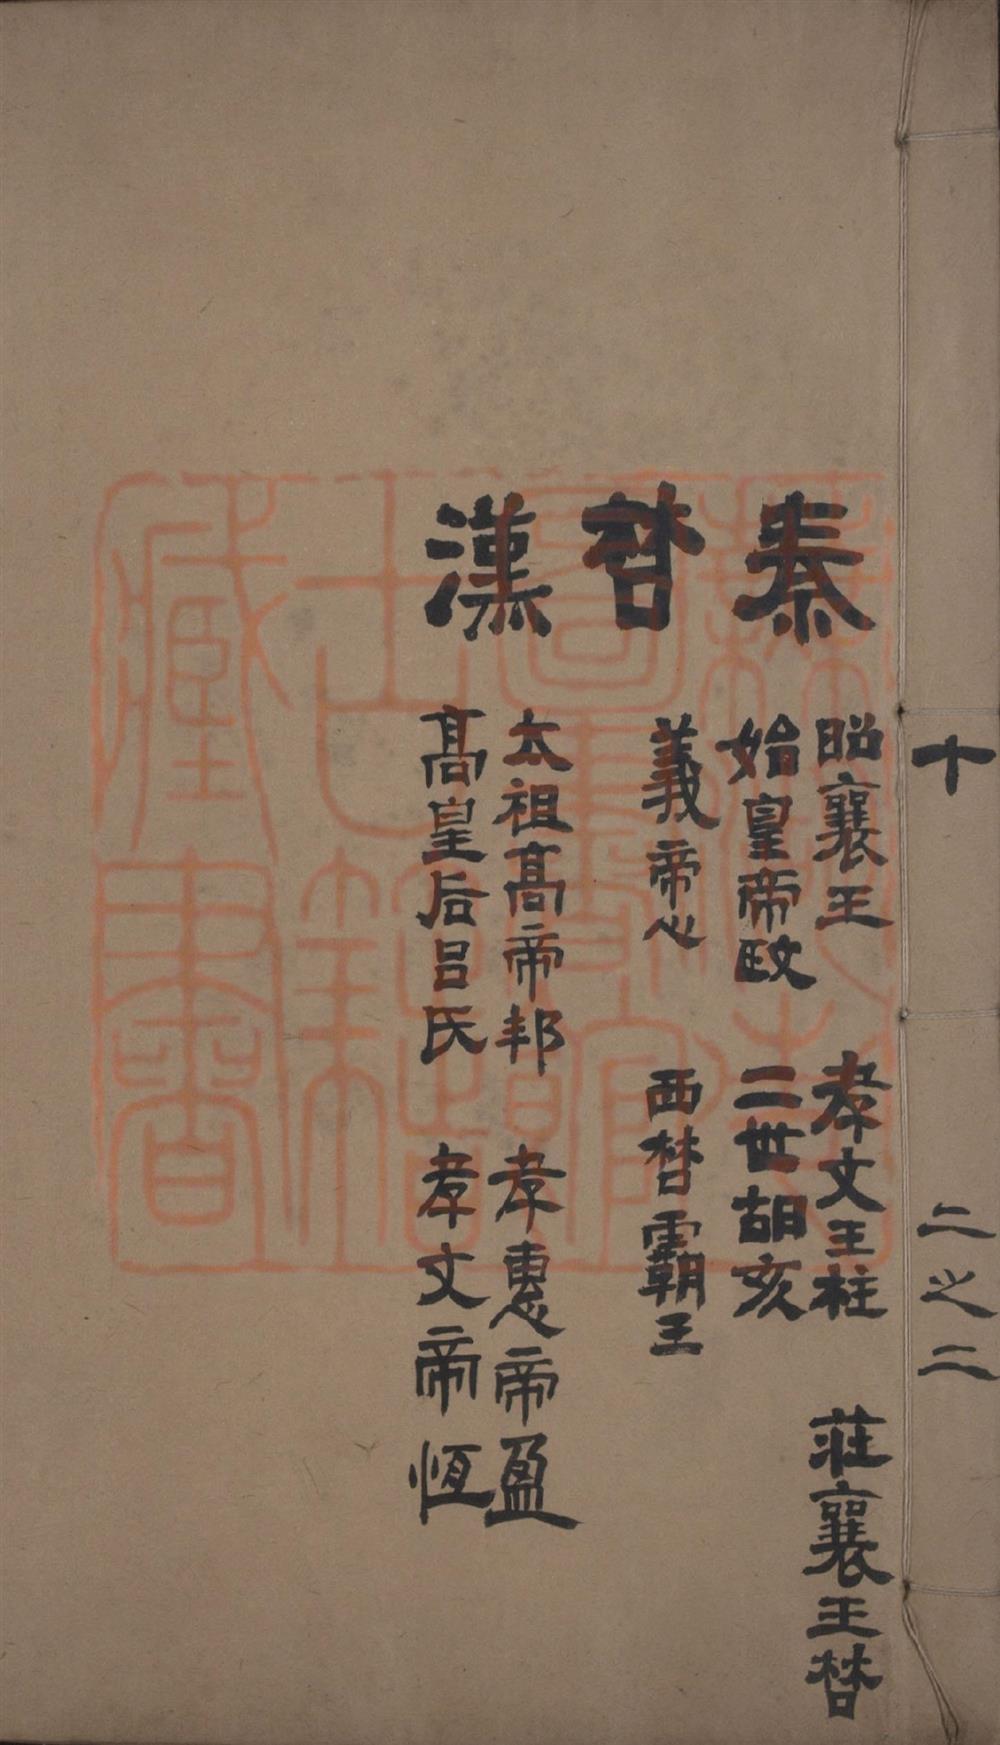 十 二之二
秦
昭襄王 孝文王柱 莊襄王楚
始皇帝政 二世胡亥
楚
義帝心 西楚霸王
漢
太祖高帝邦 孝惠帝盈
高皇后呂氏 孝文帝恆
藏書